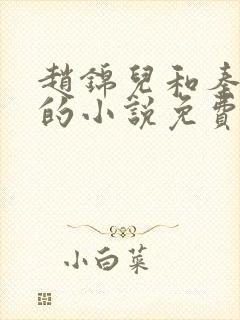 趙錦兒和秦
的小說免費
小白菜